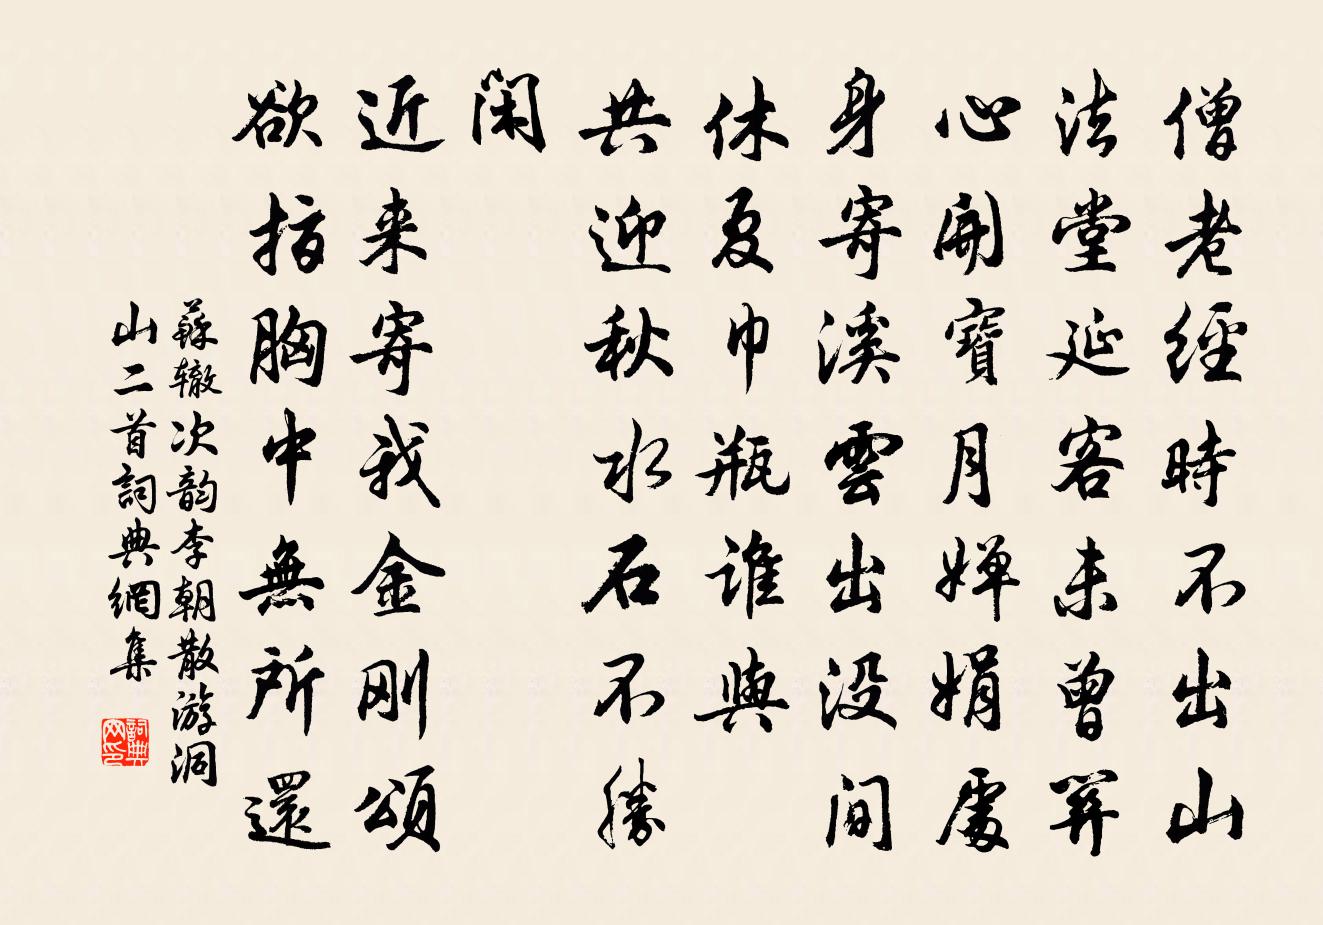 僧老經時不出山
法堂延客未曾關
心開寶月嬋娟處
身寄溪雲出没間
休夏巾瓶誰與
共迎秋水石不勝
閑
近来寄我金剛頌
欲指胸中無所還
蘇辙次韵李朝散游洞
山二首詞典網集
詞典网印